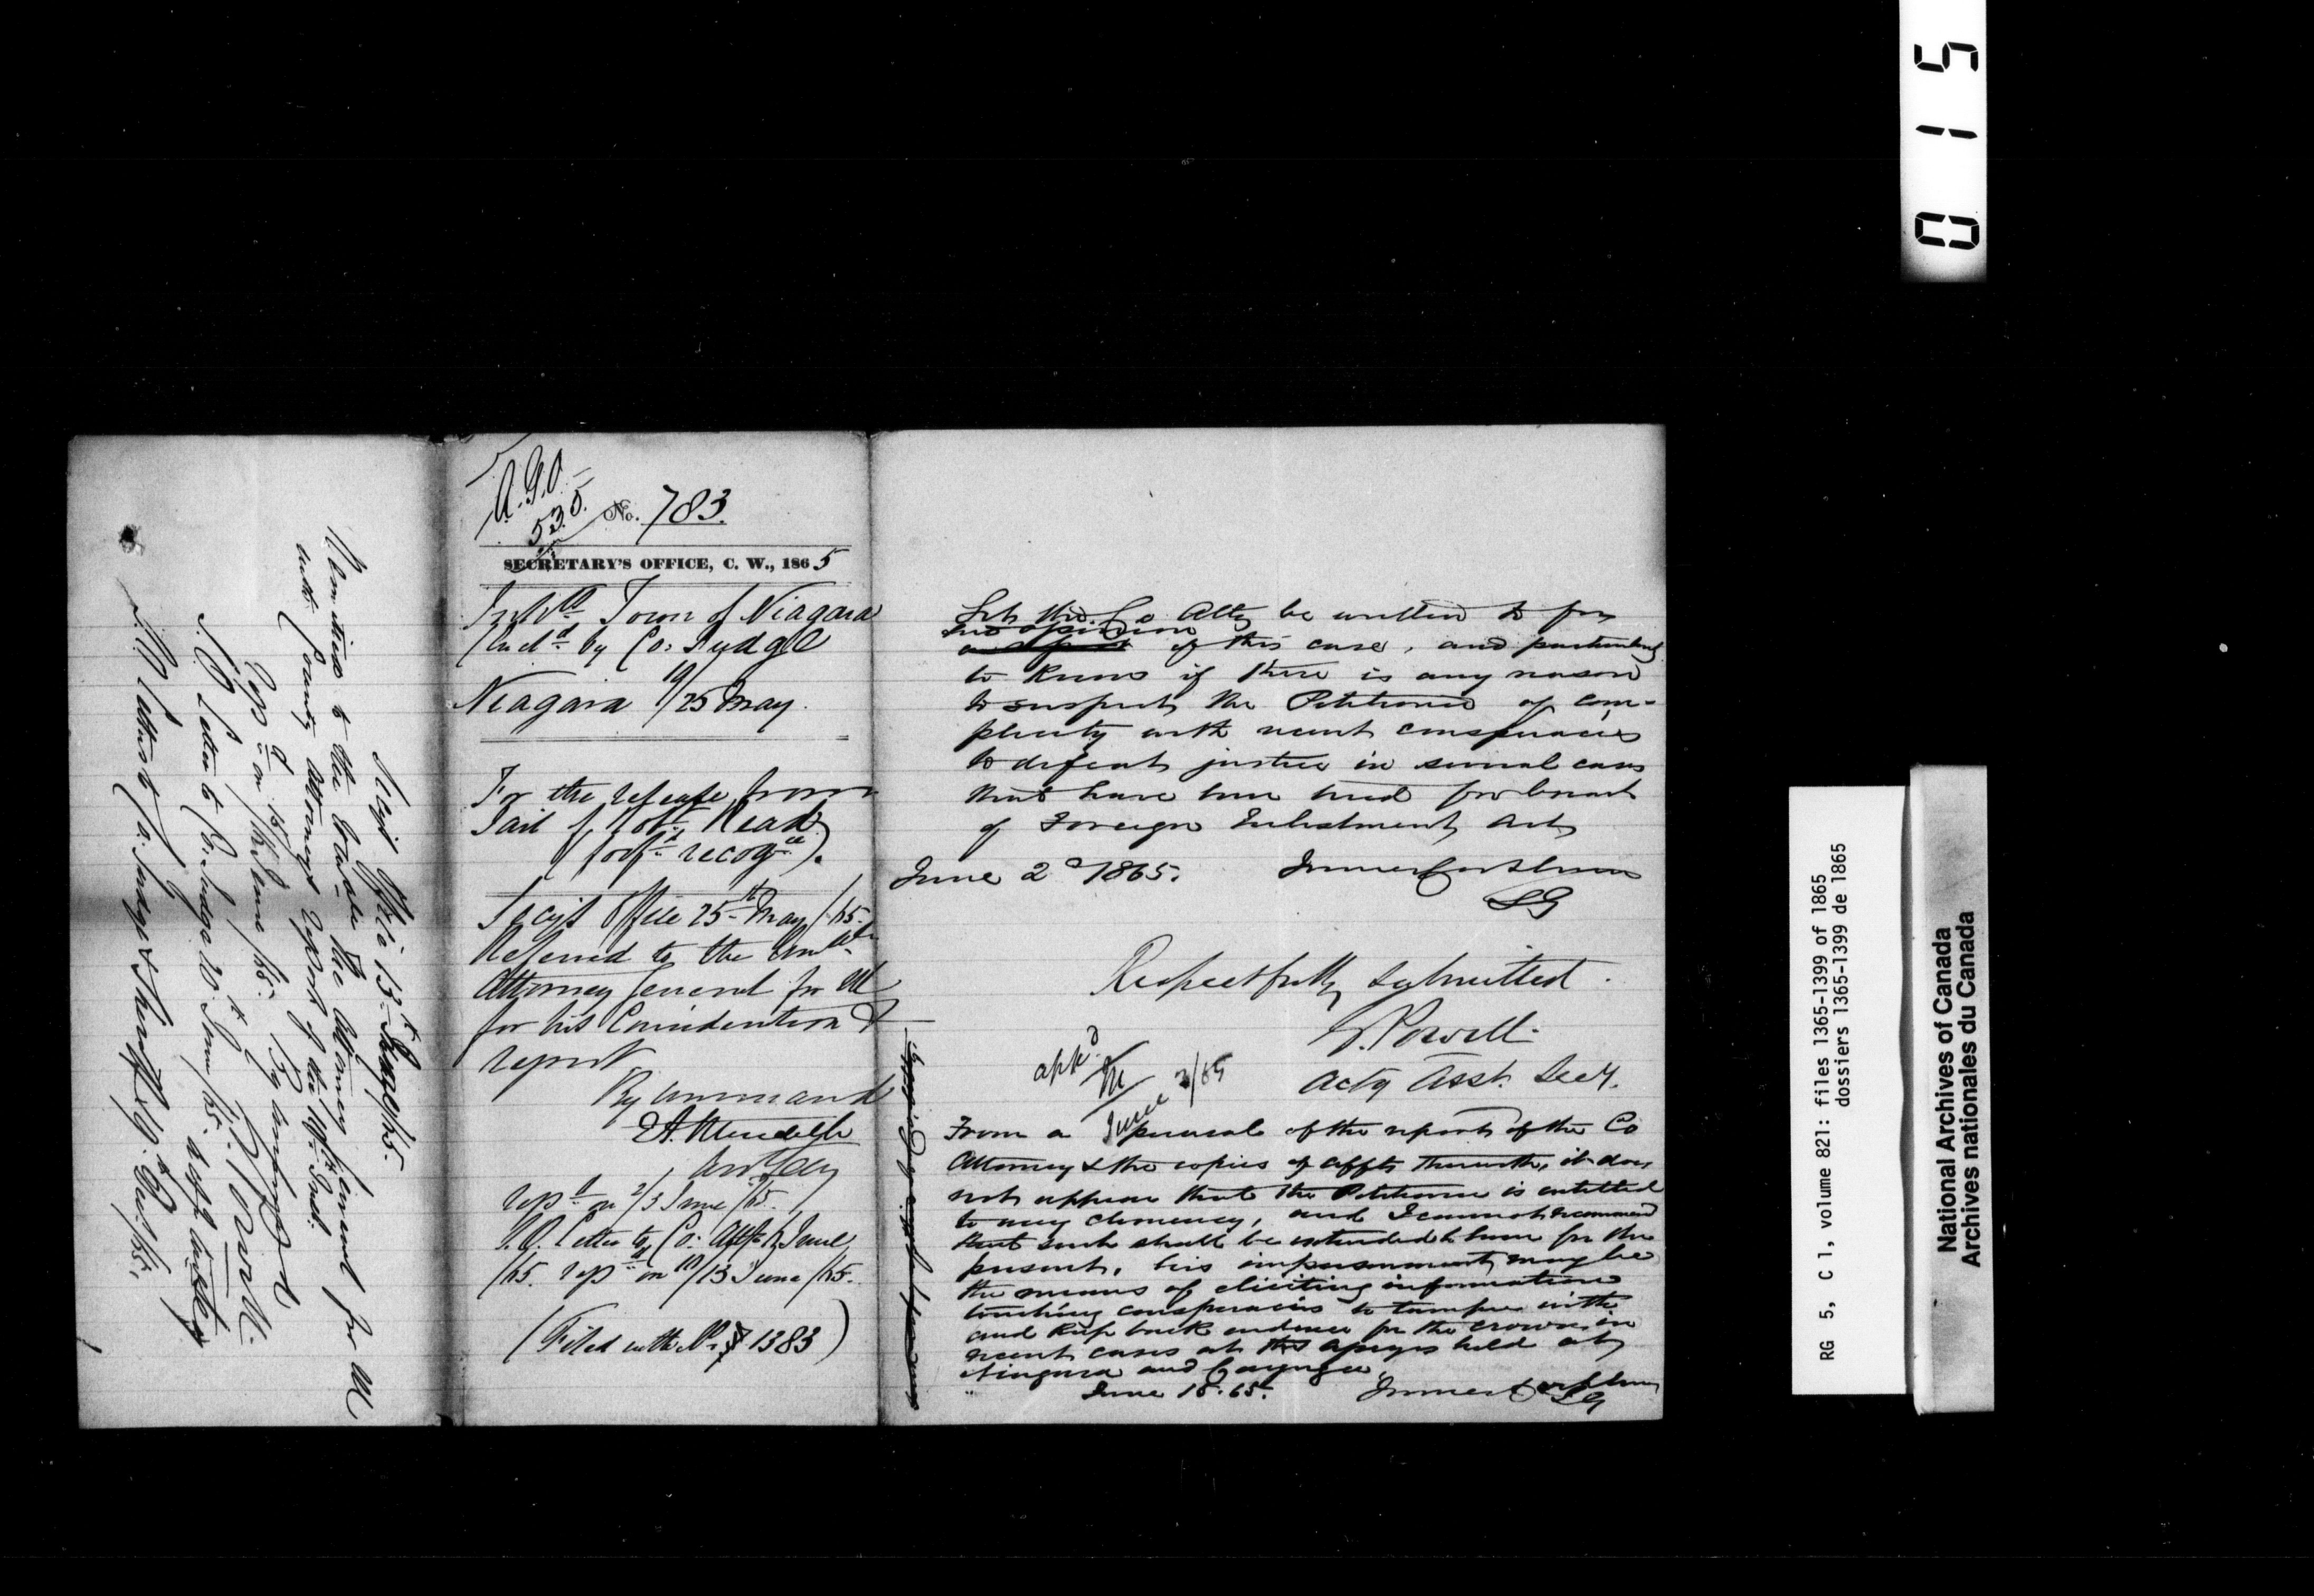 A.G.O.
535.
No. 783.
SECRETARY'S OFFICE, C. W., 1865
Inhts Town of Niagara
(Recd by Co: Judge
Niagara 19/25 May.
For the release from
Jail of Robt Read
(forfd recogce).
Secy's Office 25th May /65.
Referred to the Honble
Attorney General for UC
for his Consideration &
report
By command
E A Meredith
Asst Secy
repd on 2/3 June /65.
S.O. Letter to Co: Atty June
/65. repd on 10/13 June /65.
(Filed with No. 1383)
Secy's Office 13th June /65.
Remitted to the Honble the Attorney General for UC
with County Attorney's report of the Inst.
By command
Repd on 15 June /65.
G. Powell.
S.O. Letter to Co: Judge 20th June /65.
Let the Co Atty be written to for
his opinion
of this case, and particularly
to know if there is any reason
to suspect the Petitioner of com-
plicity with recent conspiracies
to defeat justice in several cases
that have been tried for breach
of Foreign Enlistment Act
June 2d 1865. James Cockburn
SG
Respectfully submitted.
G. Powell
Actg Asst. Secy.
appd
M
June 3/65
From a perusal of the report of the Co
Attorney & the copies of affts therewith, it does
not appear that the Petitioner is entitled
to any clemency, and I cannot recommend
that such shall be extended to him for the
present, his imprisonment may be
the means of eliciting information
touching conspiracies to tamper with
and keep back evidence for the crown in
recent cases at the Assizes held at
Niagara and Cayuga
June 15. 65. James Cockburn
SG
0 1 5
RG 5, C 1, volume 821: files 1365-1399 of 1865
dossiers 1365-1399 de 1865
National Archives of Canada
Archives nationales du Canada